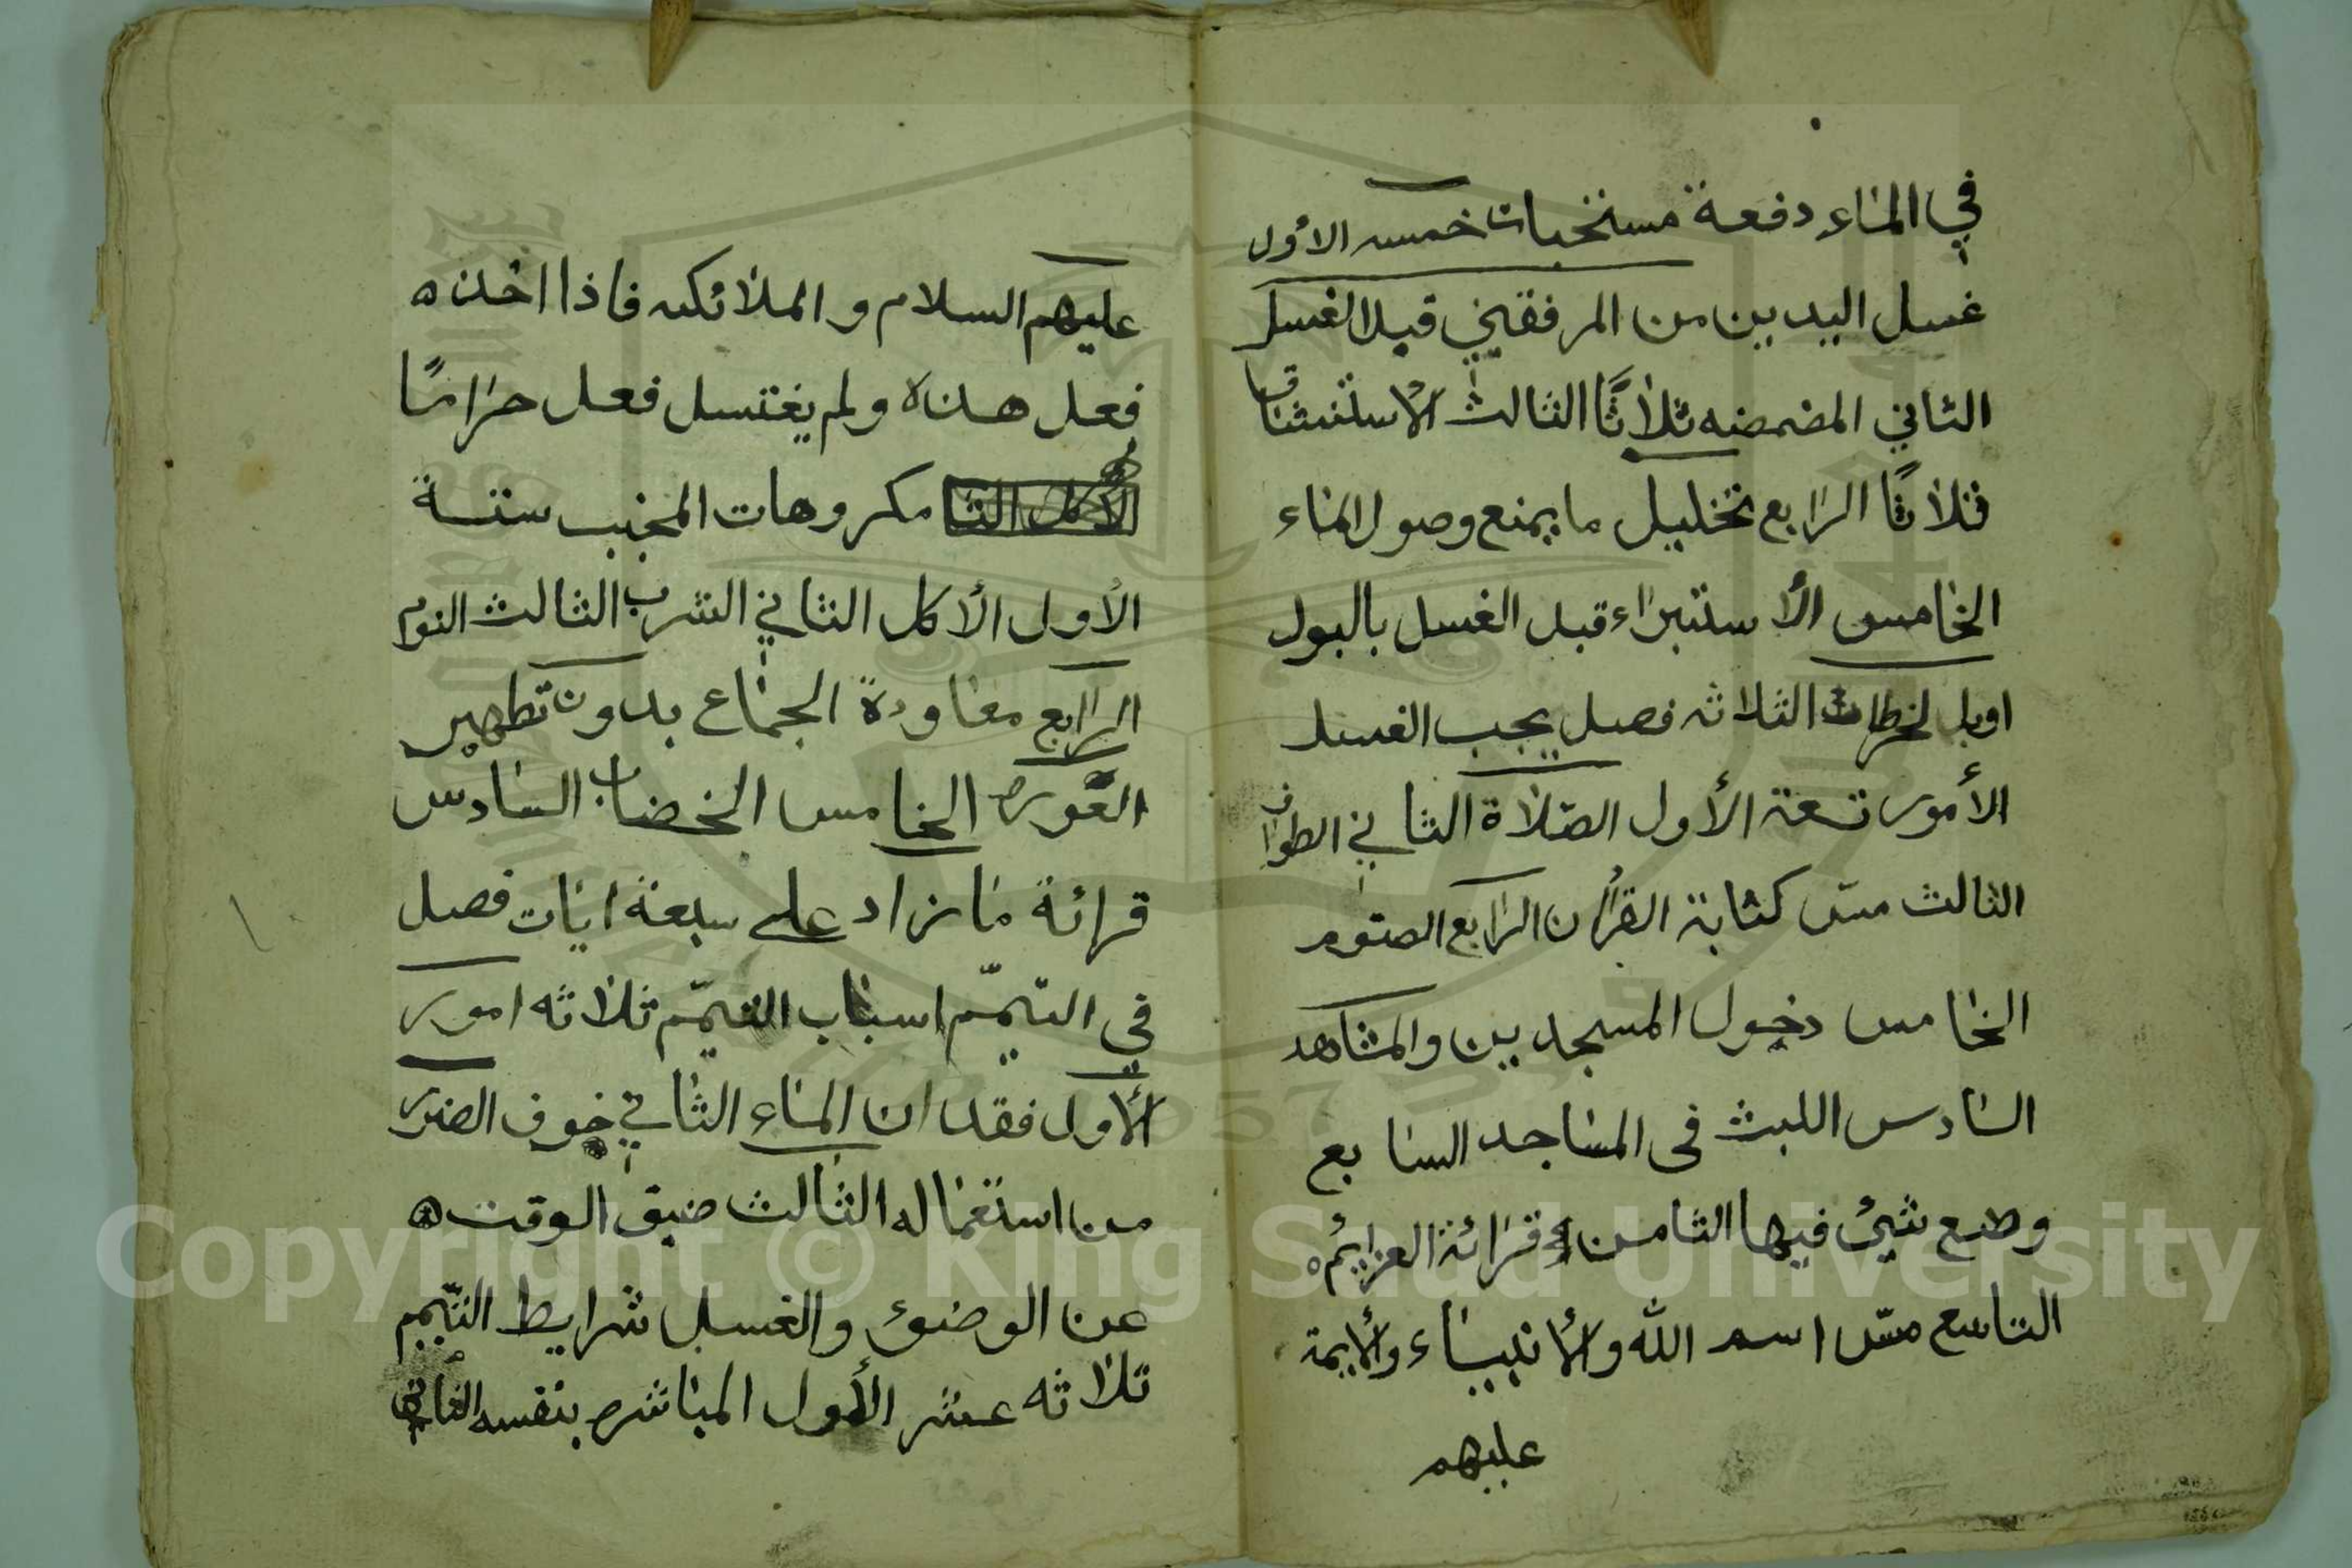 في الماء دفعة مستحبات خمسه الأول
غسل اليدين من المرفقين قبل الغسل
الثاني المضمضه ثلاثًا الثالث الأستنشاق
ثلاثًا الرابع تخليل ما يمنع وصول الماء
الخامس الأستبراء قبل الغسل بالبول
او بالخرطات الثلاثه فصل يجب الغسل
الأمور تسعة الأول الصّلاة الثاني الطواف
الثالث مسّ كتابة القرأن الرابع الصّوم
الخامس دخول المسجدين والمشاهد
السادس اللبث فى المساجد السابع
وضع شيئ فيها الثامن قرائة العزايئم
التاسع مسّ اسم الله والأنبياء والأيمة
عليهم
عليهم السلام والملائكه فاذا اخذ
فعل هذه ولم يغتسل فعل حرامًا
مكروهات المجنب ستة
الأول الأكل الثاني الشرب الثالث النوم
الرابع معاودة الجماع بدون تطهير
العوره الخامس الخضاب السادس
قرائة ما زاد على سبعة ايات فصل
في التيمّم اسباب التيمّم ثلاثه امور
الأول فقدان الماء الثاني خوف الضرر
من استعماله الثالث ضيق الوقت
عن الوضوئ والغسل شرايط التيّمم
ثلاثه عشر الأول المباشره بنفسه الثاني
Copyright © King Saud University
1957